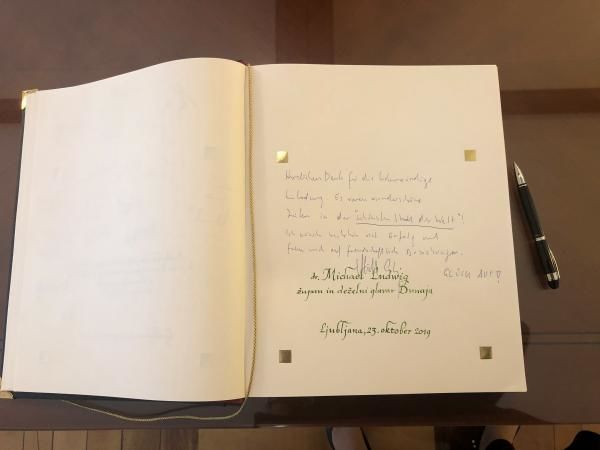 Herzlichen Dank für die liebenswürdige
Einladung. Es waren wunderschöne
in der "schönsten Stadt der Welt"!
Ich wünsche weiterhin viel Erfolg und
freue mich auf freundschaftliche Beziehungen.
GLÜCK AUF!
dr. Michael Ludwig
župan in deželni glavar Dunaja
Ljubljana, 23. oktober 2019